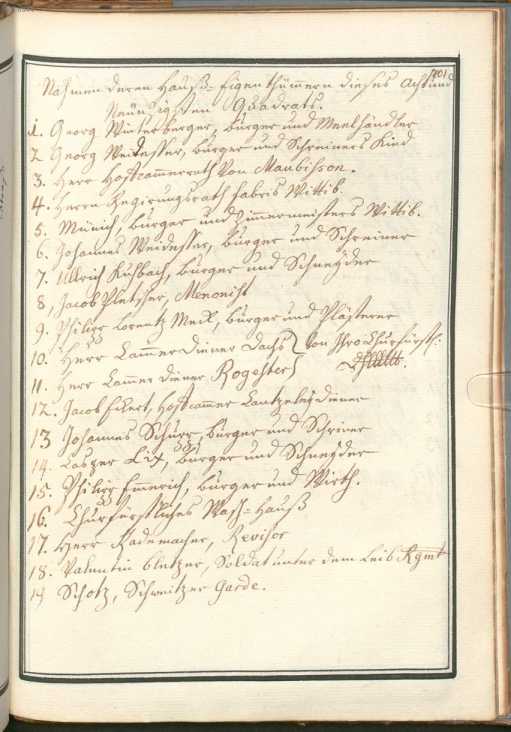 701
Nahmen deren Hauß-Eigenthümmern dieses Acht und
Neünzigsten Quadrats.
1. Georg Winterberger, bürger und Meelhändler
2 Georg Weidesser, bürger und Schreiners Kind
3. Herr Hofcammerrath von Maubisson.
4. Herrn Regierungsrath fabris Wittib.
5. Münich, bürger und Zimmermeisters Wittib.
6. Johannes Weidesser, bürger und Schreiner
7. Ullrich Kuhbach, bürger und Schneyder
8, Jacob Pletscher, Menonist
9. Philipp Lorentz Meck, bürger und Pflästerer
10. Herr Cammerdiener Dachs } von Ihro Churfürstl:
11. Herr Cammer diener Rogester
12. Jacob Eckert, Hofcammer Cantzeleydiener
13 Johannes Schurr, bürger und Schriner
14. Casper Lix, bürger und Schneyder
15. Philipp Emmerich, bürger und Wirth.
16. Churfürstliches Wasch-Hauß
17. Herr Rademacher, Revisor
18. Valentin Metzger, Soldat unter dem Leib Rgmt
19 Schotz, Schweitzer Garde.